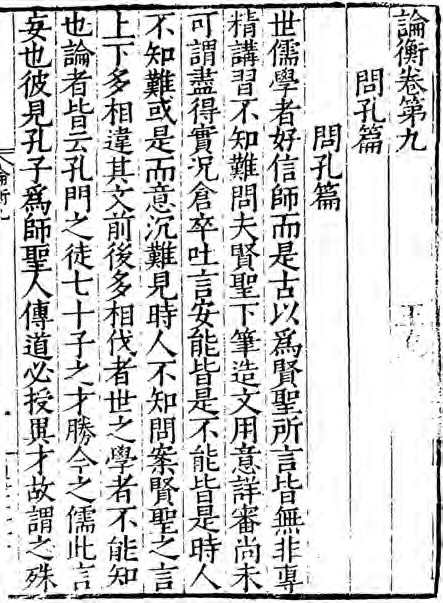 論衡卷第九
問孔篇
問孔篇
世儒學者好信師而是古以爲賢聖所言皆無非專
精講習不知難問夫賢聖下筆造文用意詳審尚未
可謂盡得實况倉卒吐言安能皆是不能皆是時人
不知難或是而意沉難見時人不知問案賢聖之言
上下多相違其文前後多相伐者世之學者不能知
也論者皆云孔門之徒七十子之才勝今之儒此言
妄也彼見孔子爲師聖人傳道必授異才故謂之殊